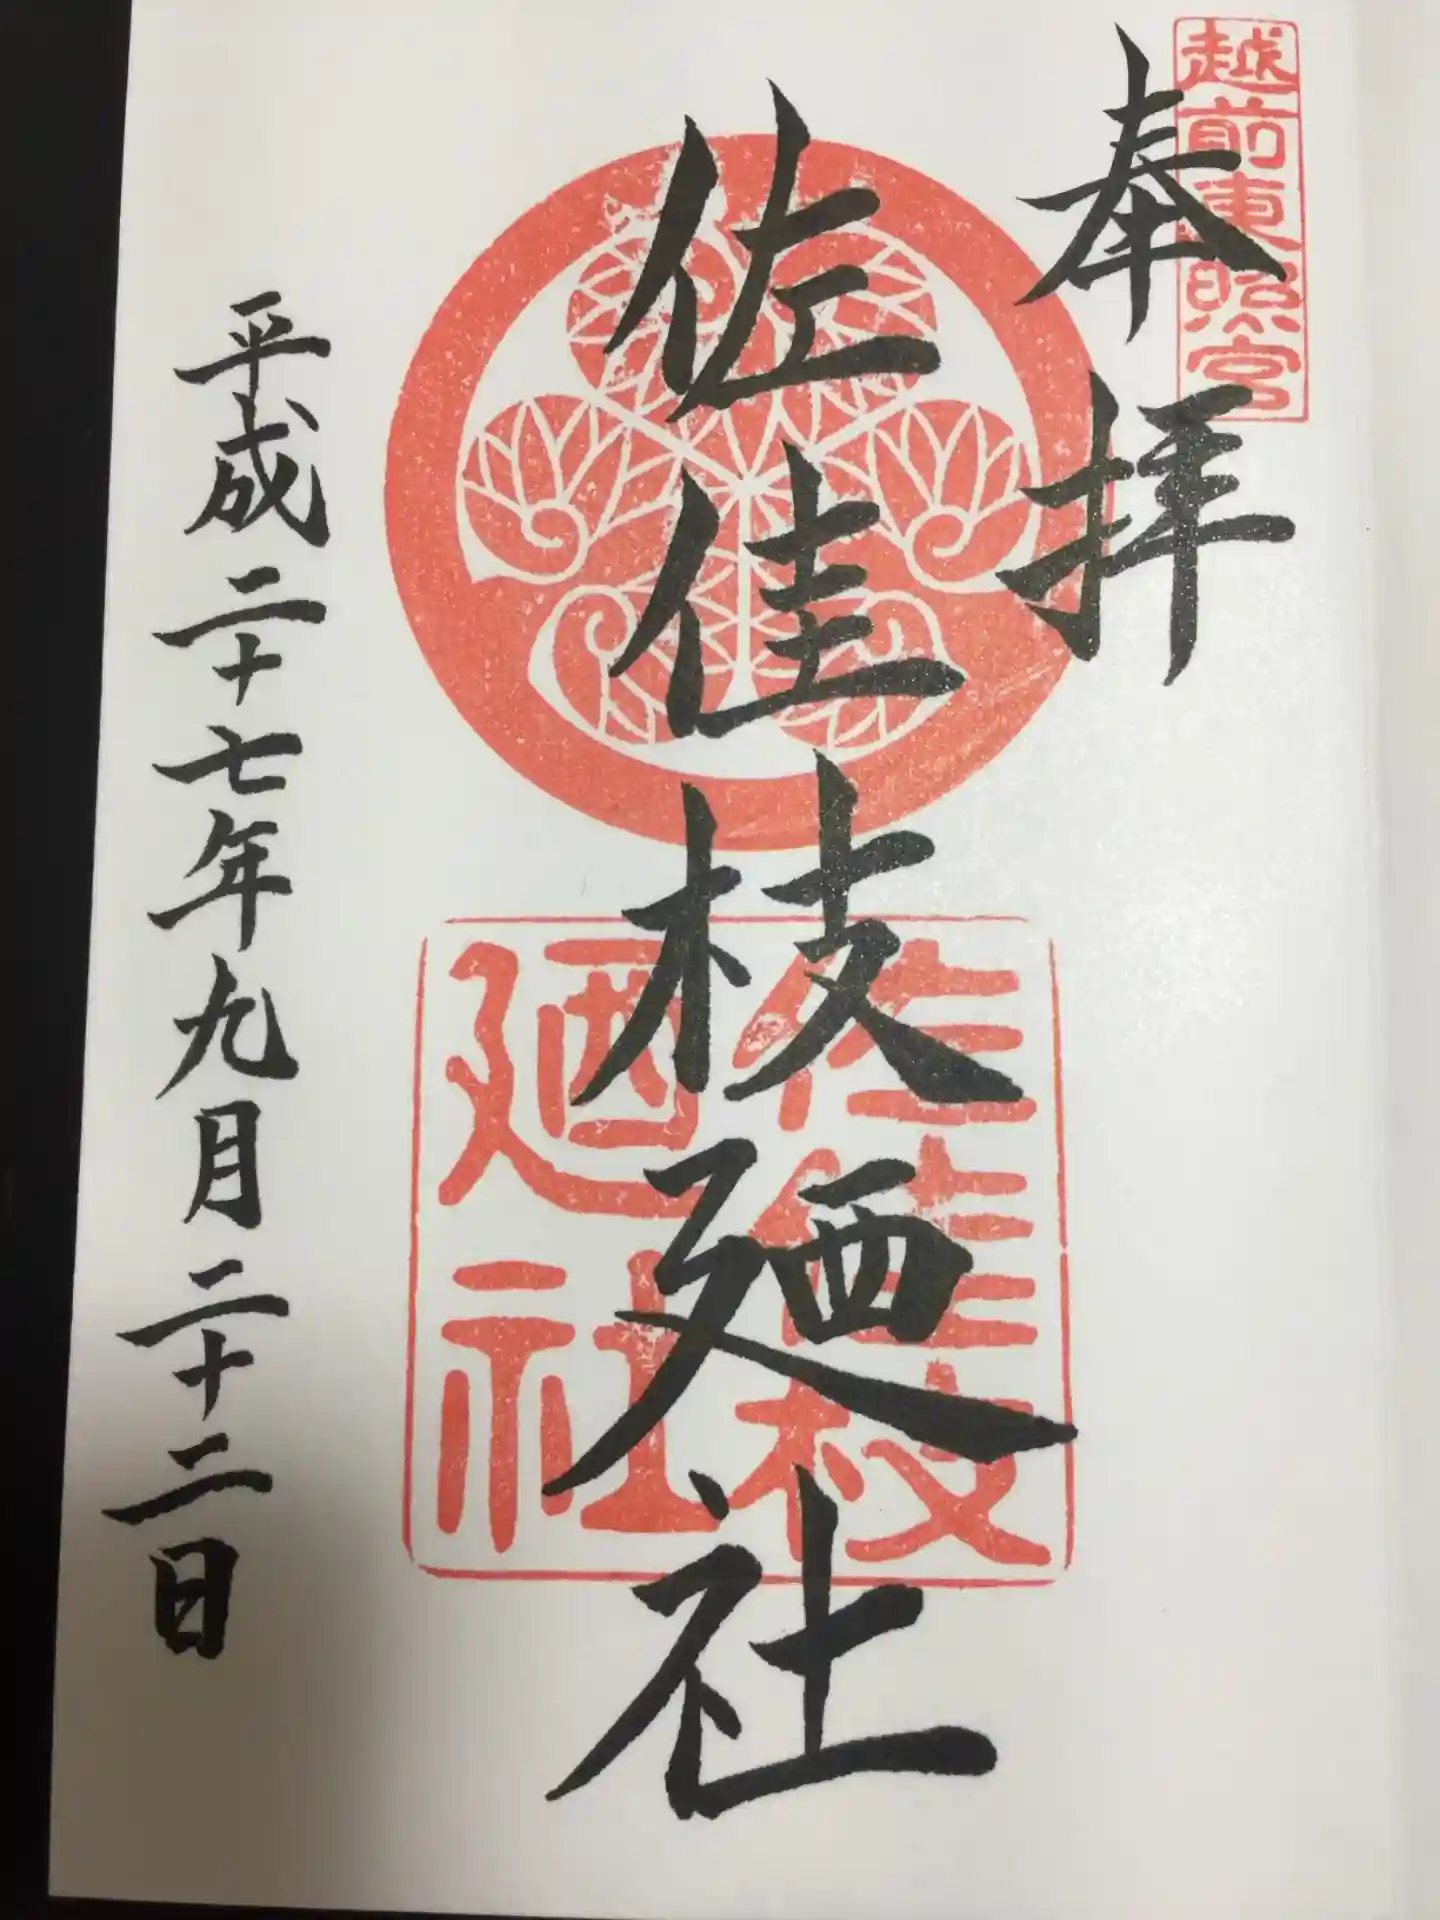 越前東照宮
奉拝
佐佳枝廼社
佐佳枝
廼社
平成二十七年九月二十二日